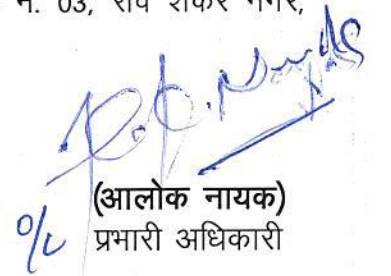 नं. 03, रवि शंकर नगर,
(आलोक नायक)
O/C प्रभारी अधिकारी